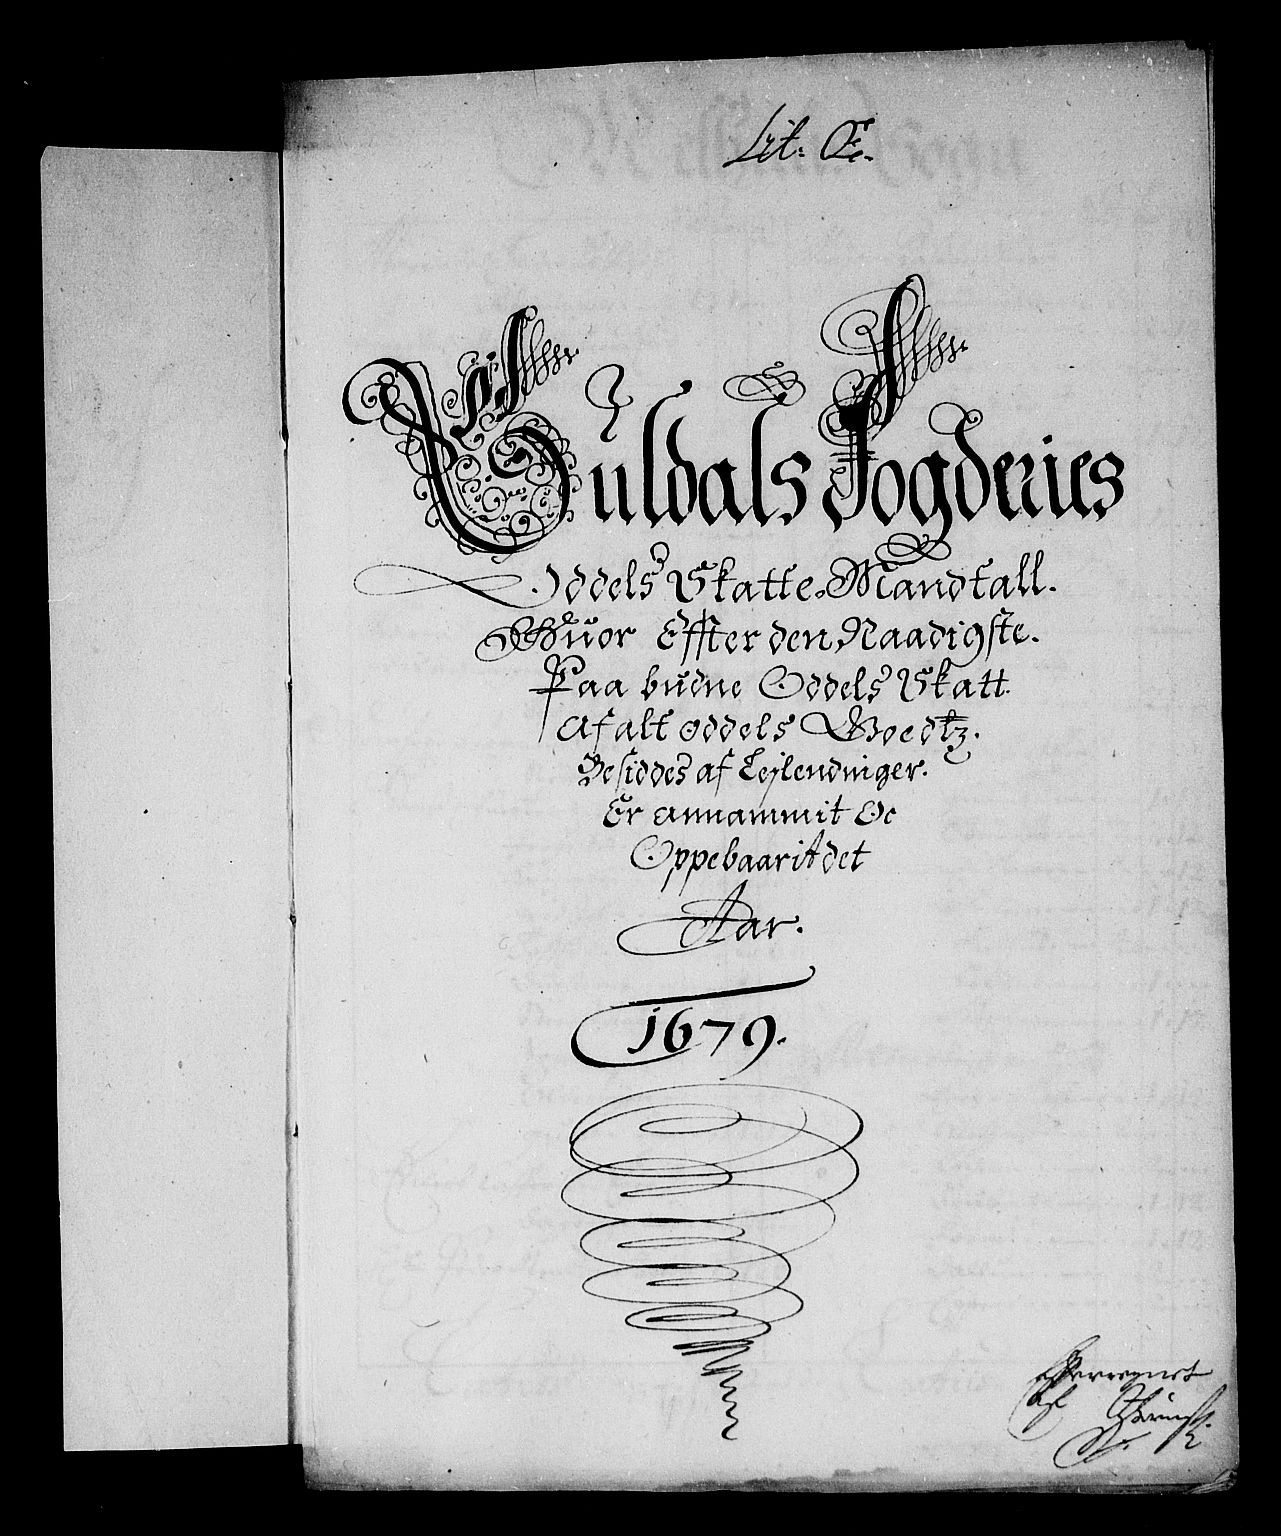 Lit: Œ.
Guldals Fogderies
Oddels Skatte Mandtall.
Huor Effter den Naadigste.
Paa budne Oddels Skatt
Af alt oddels Goedtz.
Besiddes af Lejlendniger.
Er annammit Oc
Oppebaarit Adet
Aar.
1679.